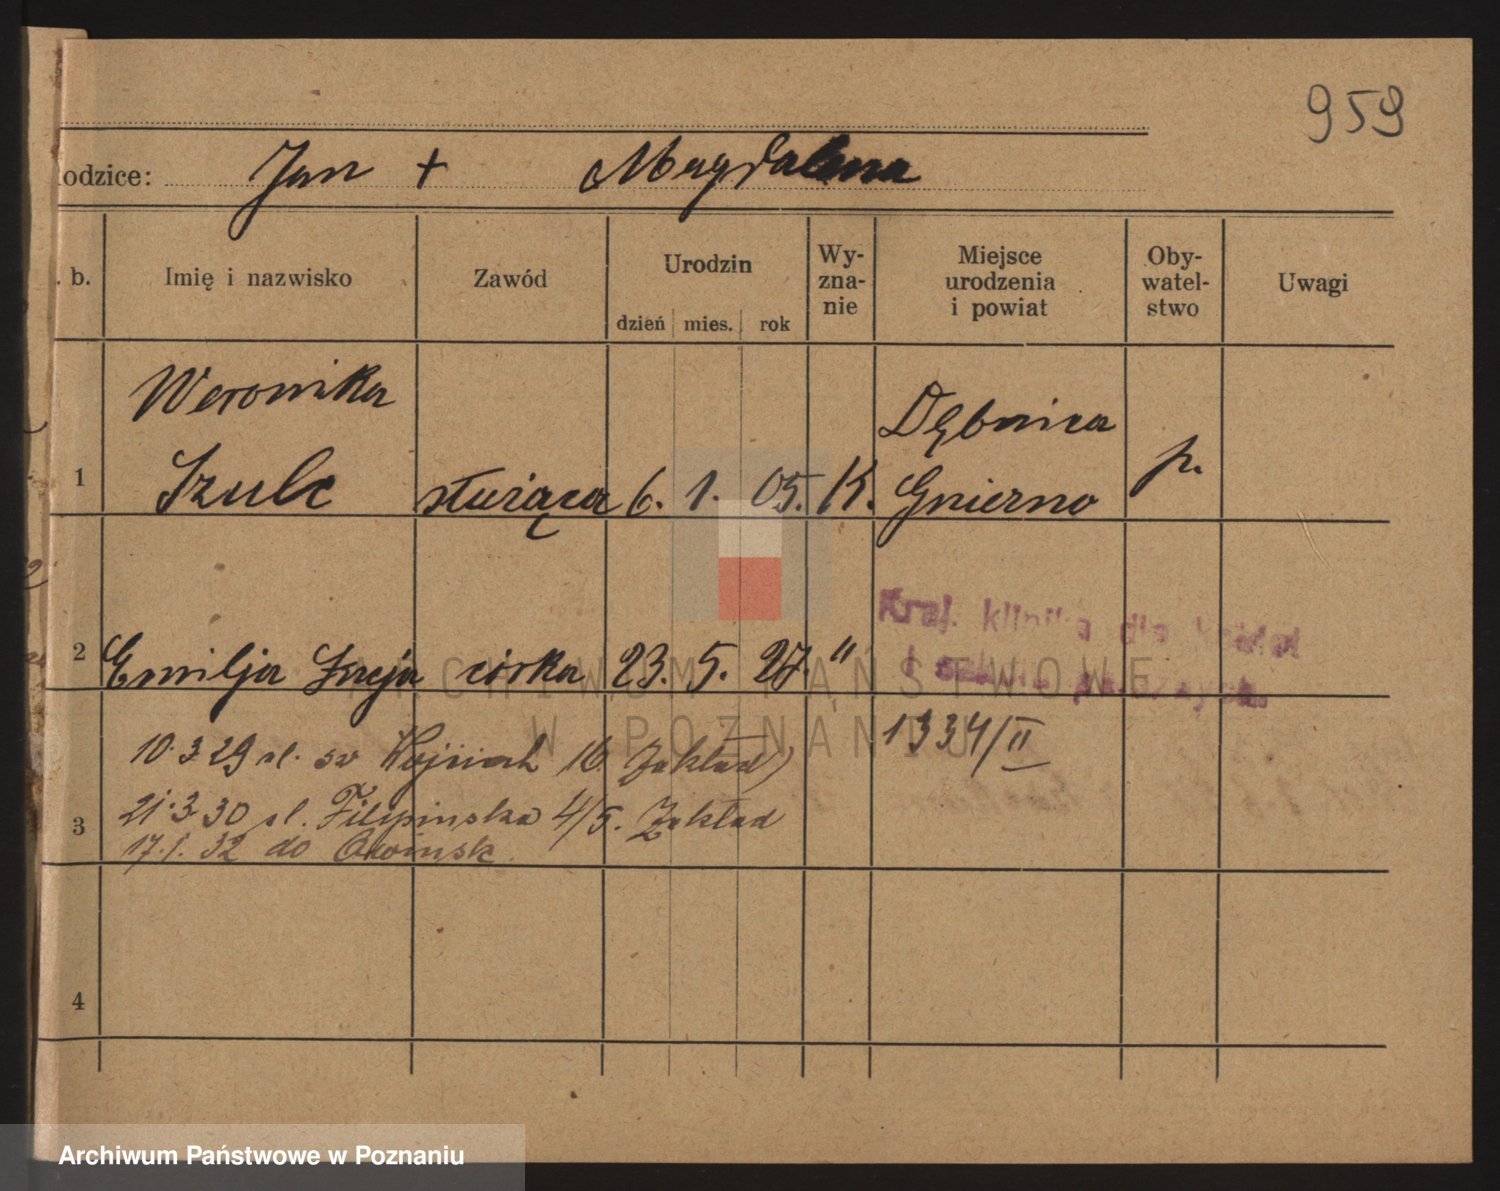 959
odzice: Jan + Magdalena
. b.
Imię i nazwisko
Zawód
Urodzin
dzień mies. rok
Wy-
zna-
nie
Miejsce
urodzenia
i powiat
Oby-
watel-
stwo
Uwagi
Weronika
Dębnica
1 Szulc służąca 6. 1. 05. K. Gniezno p.
Kraj. klinika dla kobiet
2 Emilja córka 23. 5. 27. "
1334/II
10.3.29 ul. sw Wojciech 16. Zakład)
3 21.3.30 ul. Filipinska 4/5. Zakład
17.1.32 do Owinsk.
4
ARCHIWUM PAŃSTWOWE
W POZNANIU
Archiwum Państwowe w Poznaniu